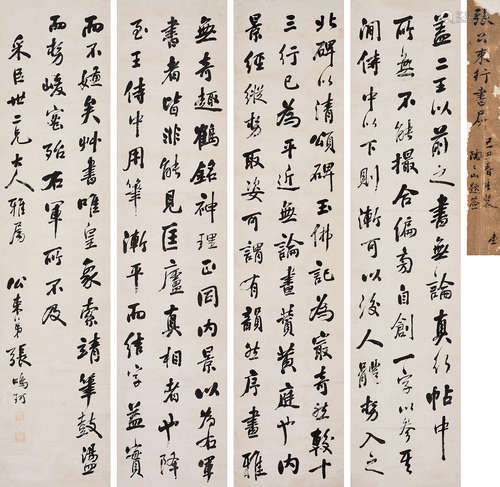 張公束行書屏
蓋二王以前之書無論真行帖中
所無不能撮合偏旁自創一字以參其
間侍中以下則漸可以後人體勢入之
北碑以清頌碑玉佛記為最奇然較十
三行已為平近無論畫贊黃庭也內
景經縱勢取姿可謂有韻然序畫雅
無奇趣鶴銘神理正同內景以為右軍
書者皆非能見匡廬真相者也降
至王侍中用筆漸平而結字益實
而不媸矣艸書唯皇象索靖筆鼓盪
而勢峻密殆右軍所不及
采臣世二兄大人雅屬
公束弟張鳴珂